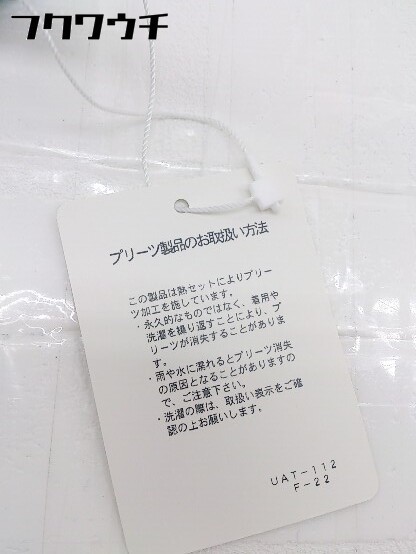 フクワウチ
プリーツ製品のお取扱い方法
この製品は熱セットによりプリー
ツ加工を施しています。
・永久的なものではなく、着用や
洗濯を繰り返すことにより、プ
リーツが消失することがありま
す。
・雨や水に濡れるとプリーツ消失
の原因となることがありますの
で、ご注意下さい。
・洗濯の際は、取扱い表示をご確
認の上お願いします。
UAT-112
F-22